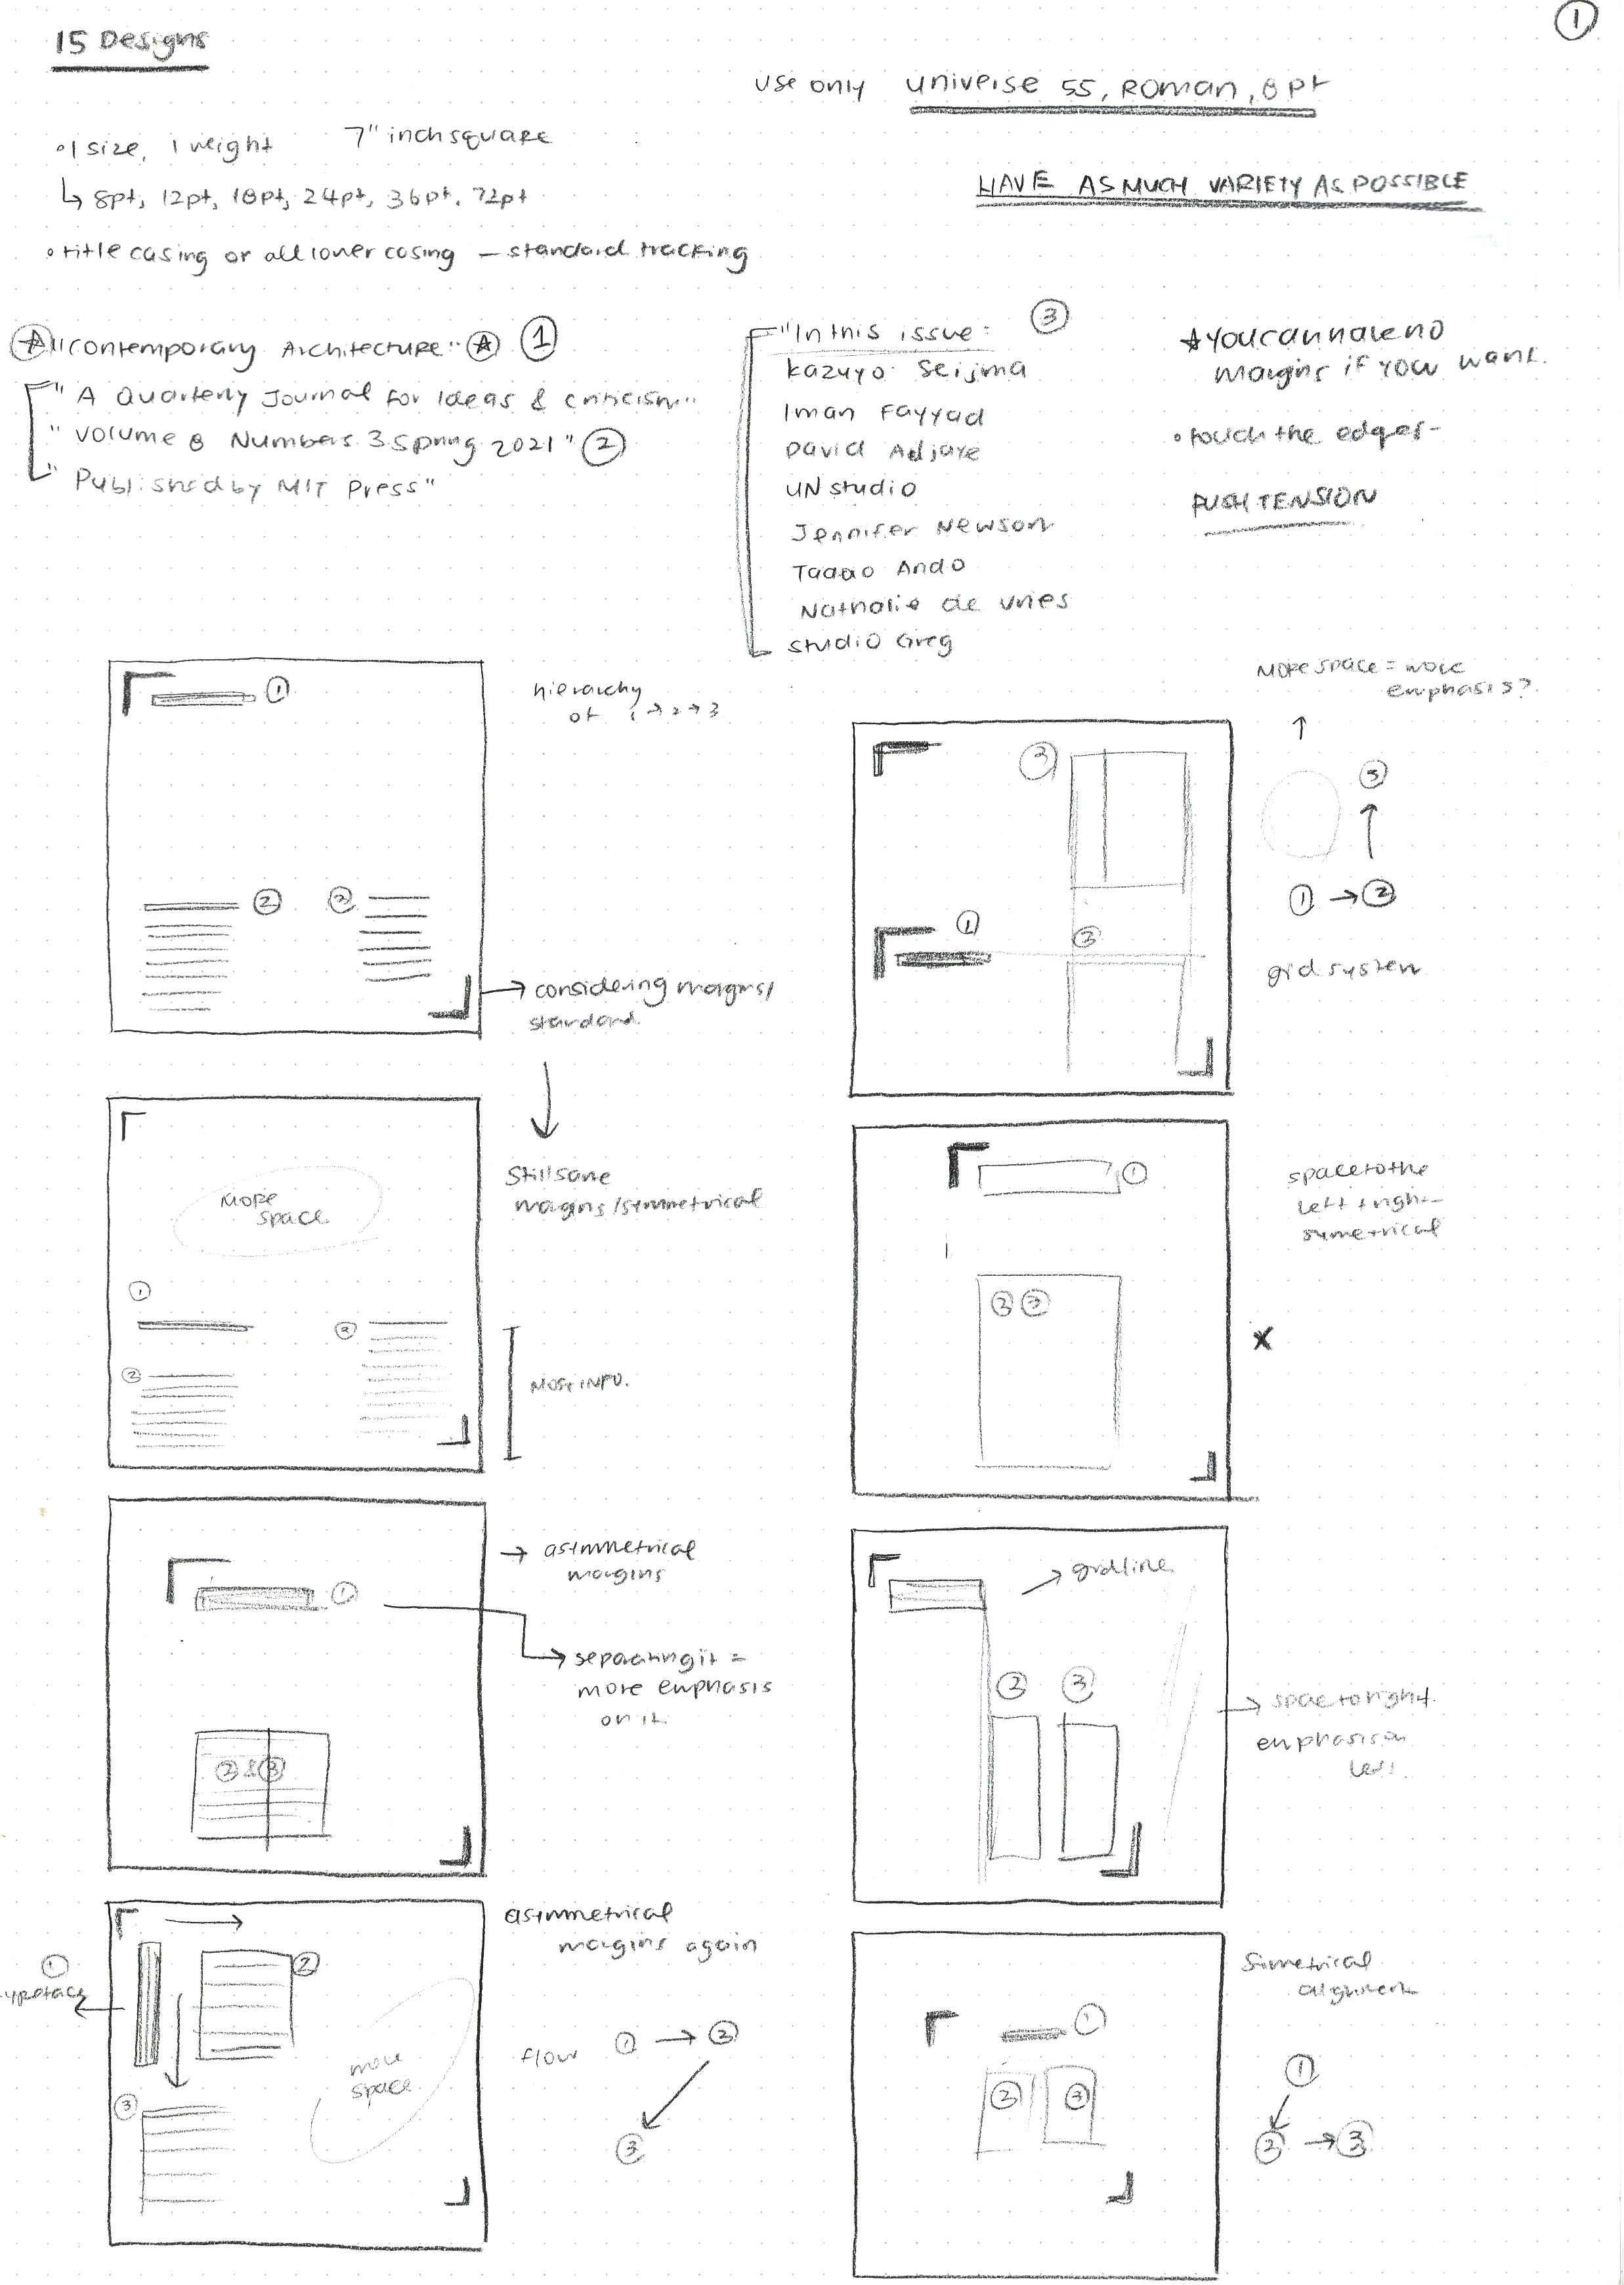 1
15 Designs
use only universe 55, Roman, 8pt
• 1 size, 1 weight 7" inch square
↳ 8pt, 12pt, 18pt, 24pt, 36pt, 72pt
HAVE AS MUCH VARIETY AS POSSIBLE
• title casing or all lower casing — standard tracking
"Contemporary Architecture" 1
"A Quarterly Journal for Ideas & criticism"
"Volume 8 Numbers 3 Spring 2021" 2
"Published by MIT Press"
"In this issue: 3
Kazuyo Seijma
Iman Fayyad
David Adjaye
UN studio
Jennifer Newson
Tadao Ando
Nathalie de Vries
Studio Greg
★ you can have no
margins if you want.
• touch the edges-
PUSH TENSION
1
2 3
hierarchy
of 1 → 2 → 3
→ considering margins/
standard.
More space = more
emphasis?
3
1 3
3
1 → 2
grid system
More
space
1
3
2
Still same
margins/symmetrical
MOST INFO.
1
2 3
space to the
left + right
symetrical
x
1
2 & 3
→ asymmetrical
margins
→ separating it =
more emphasis
on it.
→ gridline
2 3
→ space to right.
emphasis on
left.
1
typeface
2
3
more
space
asymmetrical
margins again
flow 1 → 2
3
1
2 3
Simetrical
alignment
1
2 → 3